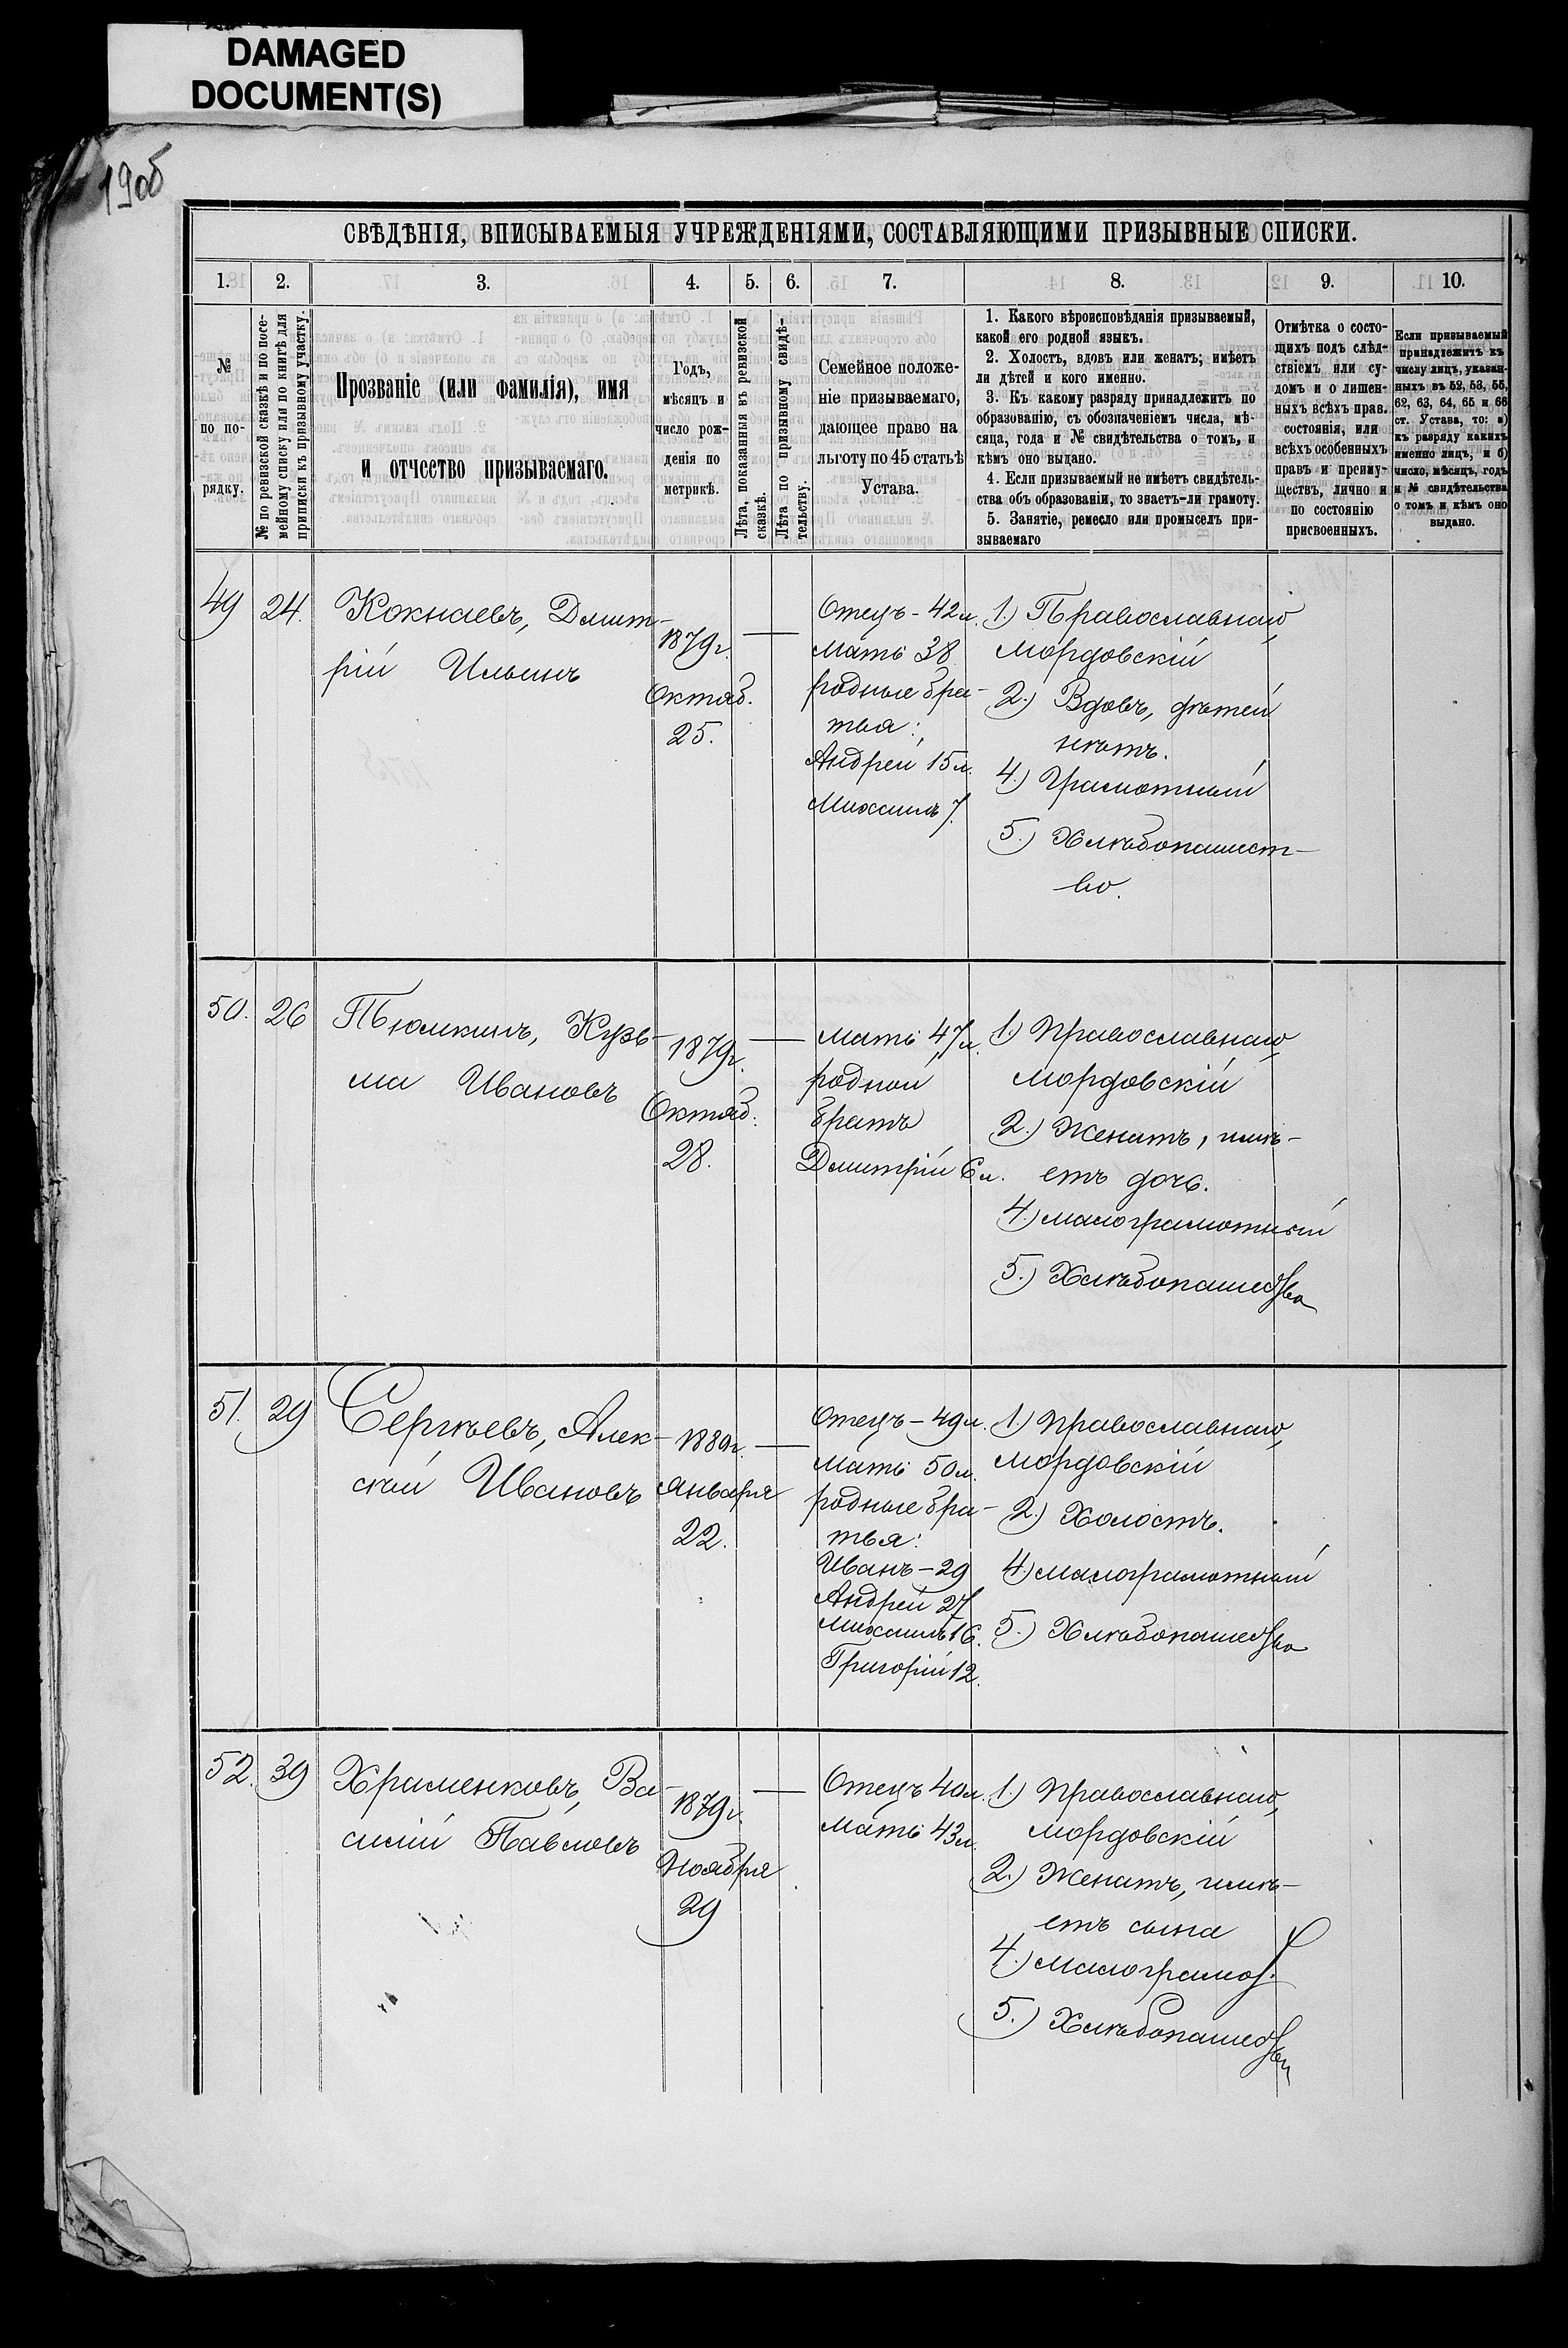 DAMAGED
DOCUMENT(S)
1905
СВѢДѢНІЯ, ВПИСЫВАЕМЫЯ УЧРЕЖДЕНІЯМИ, СОСТАВЛЯЮЩИМИ ПРИЗЫВНЫЕ СПИСКИ.
1. 2. 3. 4. 5. 6. 7. 8. 9. 10.
№
по по-
рядку.
№ по ревизской сказкѣ и по посе-
мейному списку или по книгѣ для
приписки къ призывному участку.
Прозваніе (или фамилія), имя
и отчество призываемаго.
Годъ,
мѣсяцъ и
число рож-
денія по
метрикѣ.
Лѣта, показанныя въ ревизской
сказкѣ.
Лѣта по призывному свидѣ-
тельству.
Семейное положе-
ніе призываемаго,
дающее право на
льготу по 45 статьѣ
Устава.
1. Какого вѣроисповѣданія призываемый,
какой его родной языкъ.
2. Холостъ, вдовъ или женатъ; имѣетъ
ли дѣтей и кого именно.
3. Къ какому разряду принадлежитъ по
образованію, съ обозначеніемъ числа, мѣ-
сяца, года и № свидѣтельства о томъ, и
кѣмъ оно выдано.
4. Если призываемый не имѣетъ свидѣтель-
ства объ образованіи, то знаетъ-ли грамоту.
5. Занятіе, ремесло или промыселъ при-
зываемаго
Отмѣтка о состо-
ящихъ подъ слѣд-
ствіемъ или су-
домъ и о лишен-
ныхъ всѣхъ прав.
состоянія, или
всѣхъ особенныхъ
правъ и преиму-
ществъ, лично и
по состоянію
присвоенныхъ.
Если призываемый
принадлежитъ къ
числу лицъ, указан-
ныхъ въ 52, 53, 55,
62, 63, 64, 65 и 66
ст. Устава, то: а)
къ разряду какихъ
именно лицъ, и б)
число, мѣсяцъ, годъ
и № свидѣтельства
о томъ и кѣмъ оно
выдано.
49 24.
Кокнаевъ, Дмит-
рій Ильинъ
1879г.
Октяб.
25.
Отецъ - 42л.
мать 38
родные бра-
тья:
Андрей 15л.
Михаилъ 7.
1.) Православнаго,
мордовскій
2.) Вдовъ, дѣтей
нѣтъ.
4.) Грамотный
5.) Хлѣбопашест-
во.
50. 26
Пьюлкинъ, Кузь-
ма Ивановъ
1879г.
Октяб.
28.
мать 47л.
родной
братъ
Дмитрій 6л.
1.) Православнаго,
мордовскій
2.) Женатъ, имѣ-
етъ дочь.
4.) малограмотный
5.) Хлѣбопашество
51. 29
Сергѣевъ, Алек-
сѣй Ивановъ
1880г.
Января
22.
Отецъ - 49л.
мать 50л.
родные бра-
тья:
Иванъ - 29
Андрей 27
Михаилъ 16.
Григорій 12.
1.) Православнаго,
мордовскій
2.) Холостъ.
4.) малограмотный
5.) Хлѣбопашество
52. 39
Храменковъ, Ва-
силій Павловъ
1879г.
Ноября
29
Отецъ 40л.
мать 43л.
1.) Православнаго,
мордовскій
2.) Женатъ, имѣ-
етъ сына
4.) малограмот.
5.) Хлѣбопашество